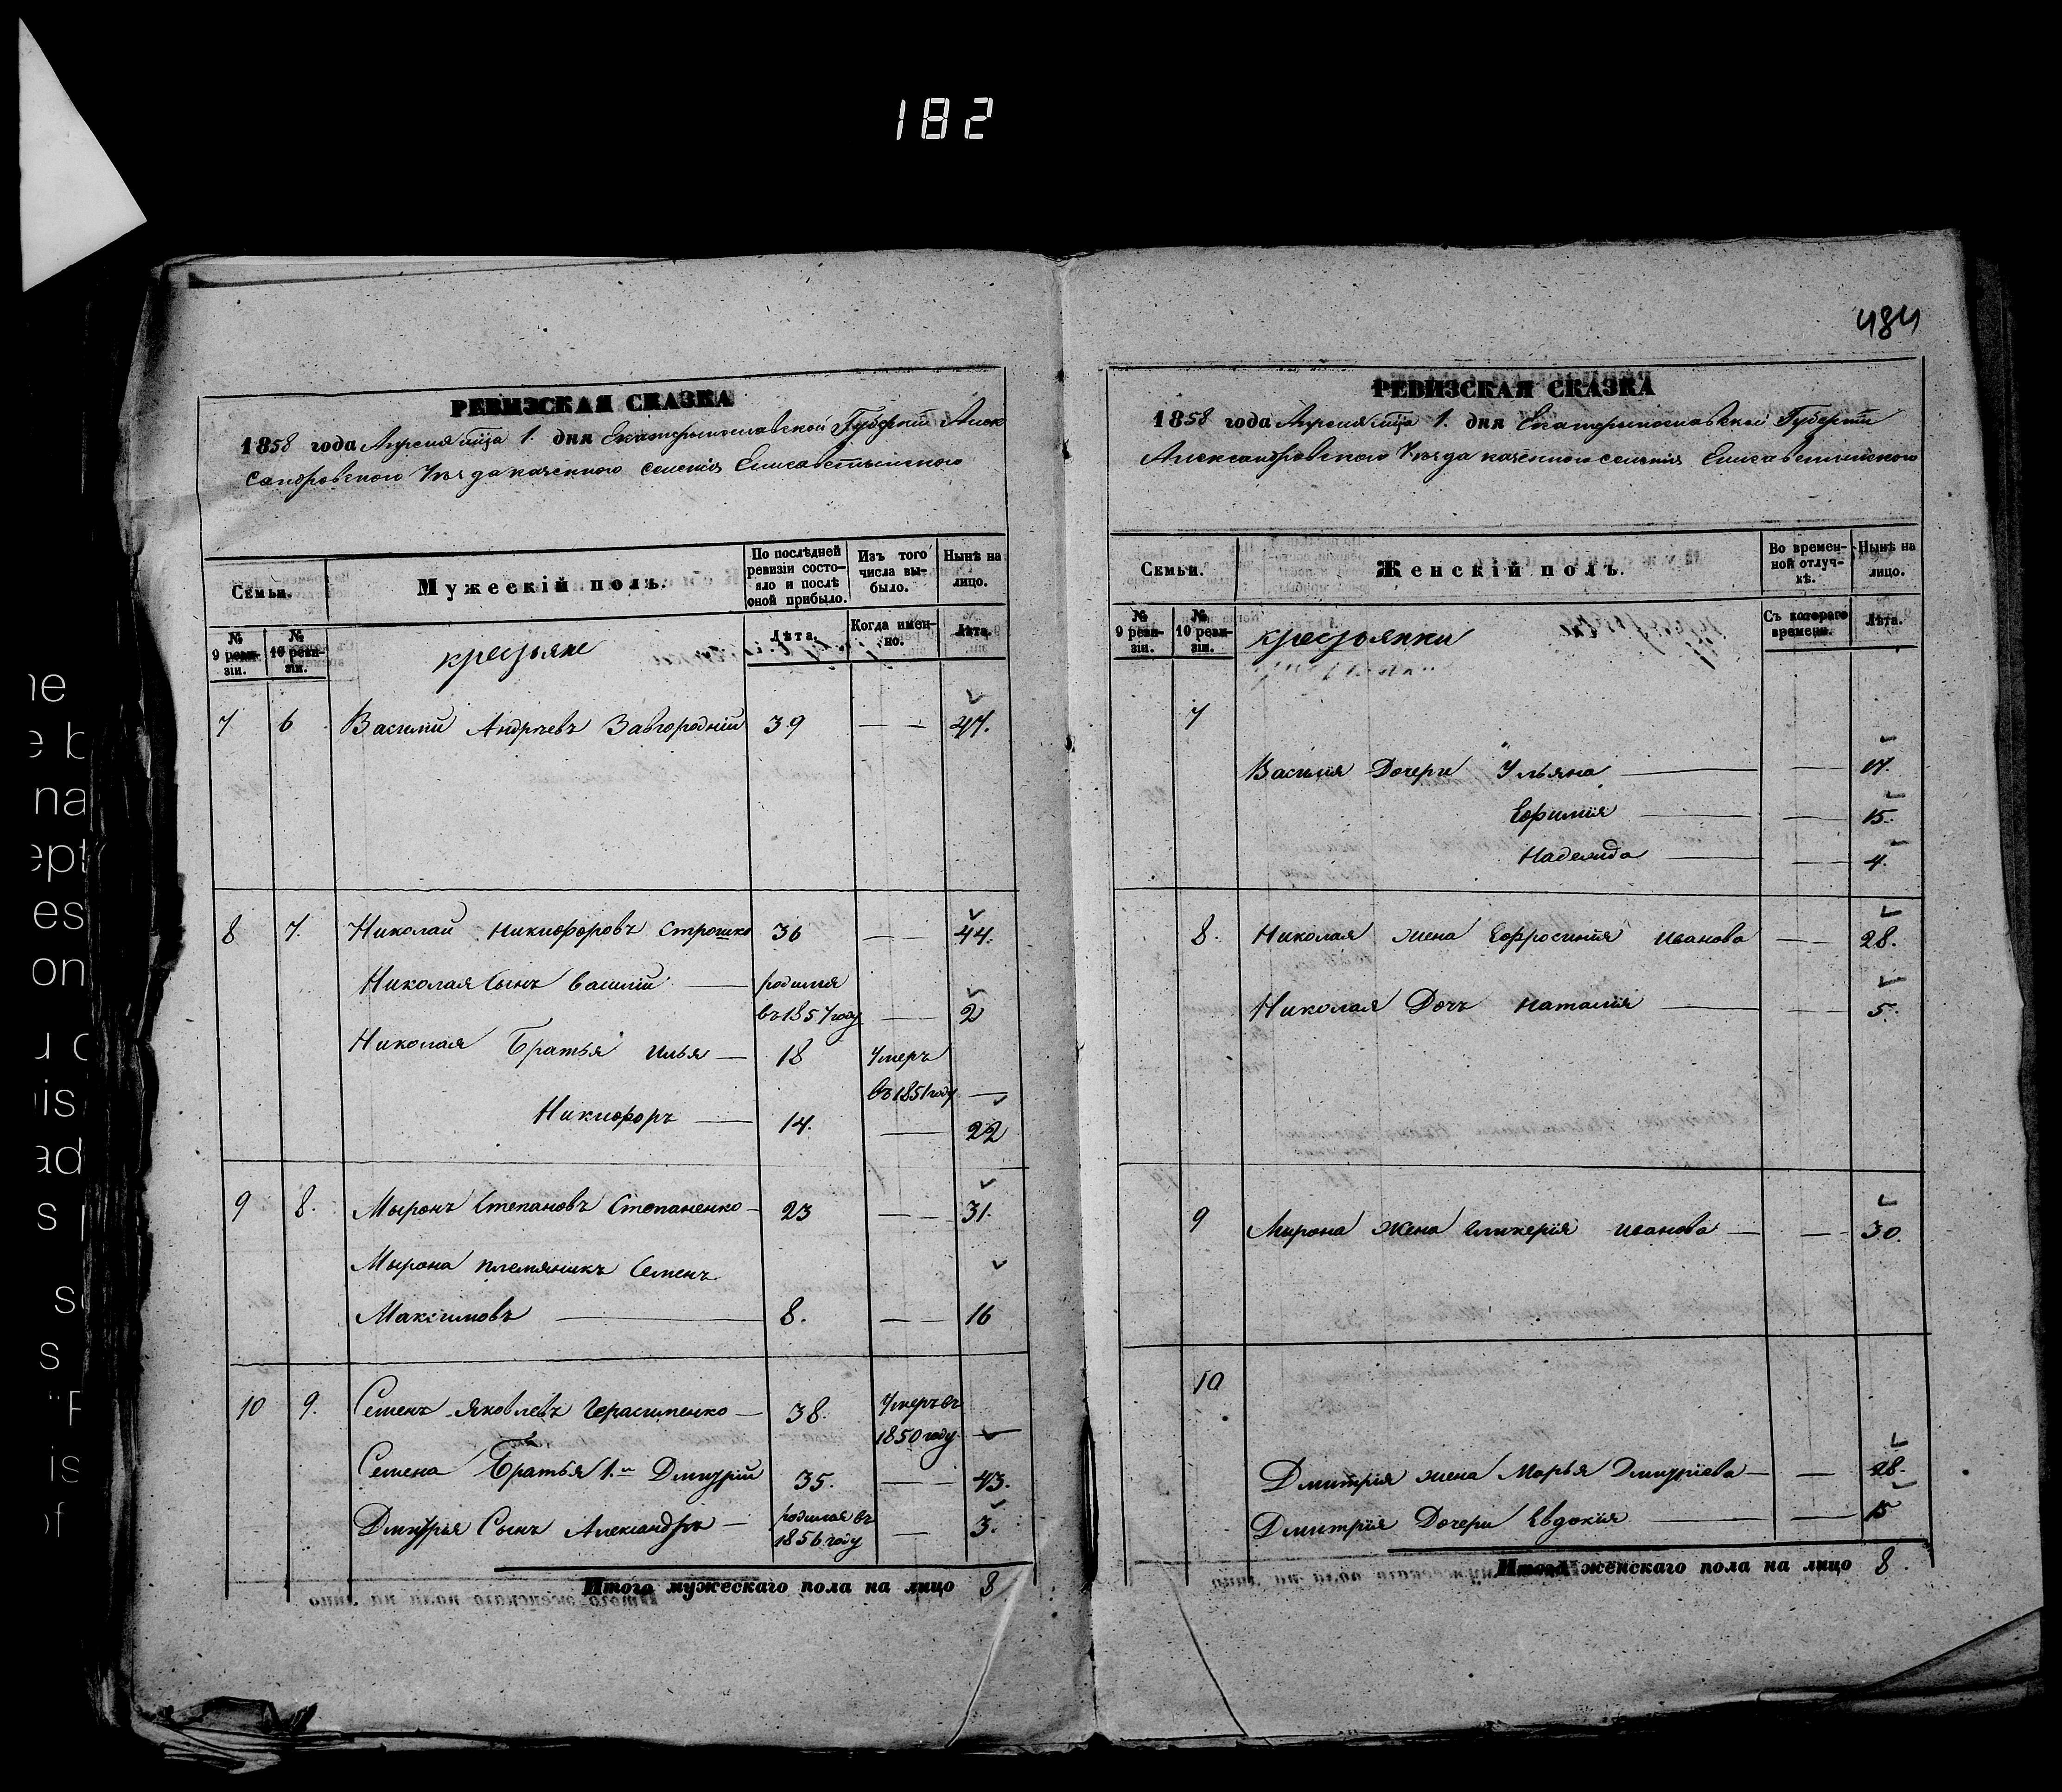 182
484
РЕВИЗСКАЯ СКАЗКА
1858 года Апреля мца 1. дня Екатеринославской Губерніи Алек
сандровского Уезда казенного селенія Елисаветынского
Семьи.
Мужескій полъ.
По послѣдней ревизіи состо-
яло и послѣ
оной прибыло.
Изъ того
числа вы-
было.
Нынѣ на
лицо.
№
9 реви-
зіи.
№
10 реви-
зіи.
крестьяне
Лѣта.
Когда имен-
но.
Лѣта.
7 6 Василий Андреевъ Завгородній 39 — — 47.
8 7. Николай Никифоровъ Строшко 36 — 44.
Николая Сынъ Василій — родился
въ 1857 году — 2
Николая Братья Илья — 18 Умеръ
въ 1851 году —
Никифоръ — 14. — 22
9 8. Мыронъ Степановъ Степаненко — 23 — — 31.
Мырона племяникъ Семенъ
Максимовъ — 8. — — 16
10 9. Семенъ Яковлевъ Герасименко — 38. Умеръ въ
1850 году —
Семена Братья 1.й Дмитрій 35. — 43.
Дмитрія Сынъ Александръ — родился въ
1856 году — 3.
Итого мужескаго пола на лицо 8
РЕВИЗСКАЯ СКАЗКА
1858 года Апреля мца 1. дня Екатеринославской Губерніи
Александровского Уезда казенного селенія Елисаветинского
Семьи.
Женскій полъ.
Во времен-
ной отлуч-
кѣ.
Нынѣ на
лицо.
№
9 реви-
зіи.
№
10 реви-
зіи.
крестьянки
Съ котораго
времени.
Лѣта.
7
Василія Дочери Ульяна — — 17.
Ефимія — — 15.
Надежда — — 4.
8. Николая жена Ефросинія Иванова — — 28.
Николая Дочь Наталія — — 5.
9 Мирона Жена Гликерія Иванова — — 30.
10
Дмитрія жена Марья Дмитріева — — 28.
Дмитрія Дочери Евдокія — — 15
Итого женскаго пола на лицо 8.